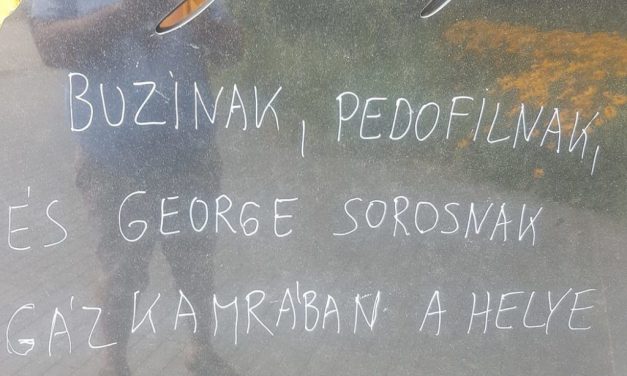 BUZINAK, PEDOFILNAK,
ÉS GEORGE SOROSNAK
GÁZKAMRÁBAN A HELYE